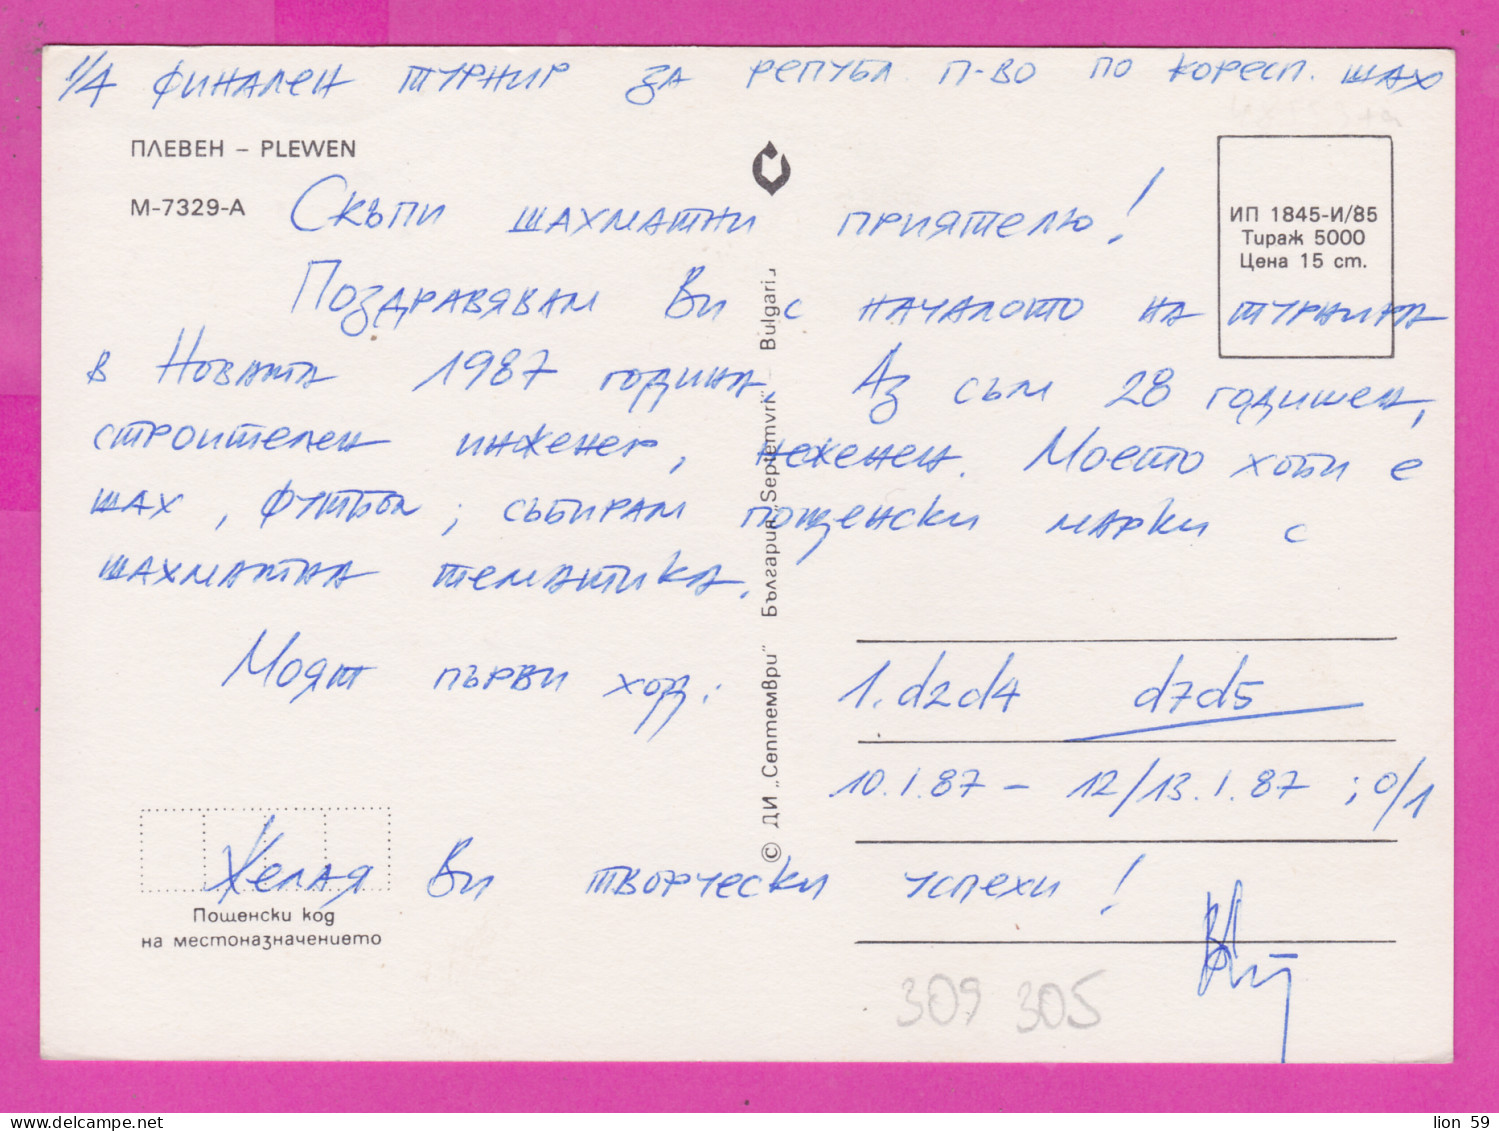 1/4 финален турнир за републ. п-во по коресп. шах
ПЛЕВЕН – PLEWEN
М-7329-А
ИП 1845-И/85
Тираж 5000
Цена 15 ст.
Скъпи шахматни приятелю!
Поздравявам Ви с началото на турнира
в Новата 1987 година. Аз съм 28 годишен,
строителен инженер, неженен. Моето хоби е
шах, футбол, събирам пощенски марки с
шахматна тематика.
Моят първи ход: 1. d2d4 d7d5
10.I.87 – 12/13.I.87 ; 0/1
Желая Ви творчески успехи!
Пощенски код
на местоназначението
© ДИ „Септември" България „Septemvri" – Bulgaria
309 305
lion 59